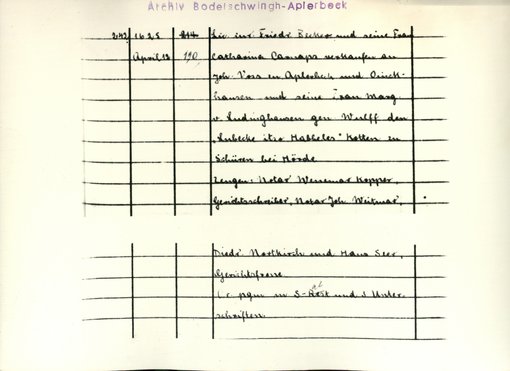 Archiv Bodelschwingh-Aplerbeck
242 1625 814 Lic. iur. Friedr. Becker und seine Frau
April 12 190 Catharina Carnaps verkaufen an
Joh. Voss in Aplerbeck und
hausen und seine Frau Marg.
v. Ludinghausen gen. Wulff den
Kotten in
Schüren bei Hörde
Zeugen: Notar Wennemar Kopper,
Gerichtsschreiber, Notar Joh. Weitmar,
Diedr. Nortkirch und Hans Seer,
Gerichtsfrone.
und 2 Unter-
schriften.